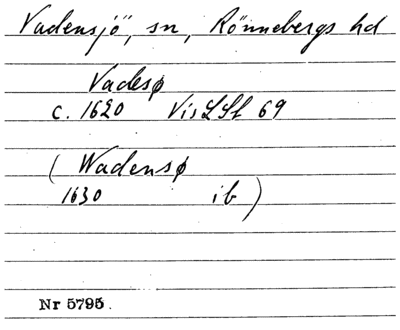 Vadensjö, sn, Rönnebergs hd
Vadesø
c. 1620 VisLSt 69
( Wadensø
1630 ib )
Nr 5795.